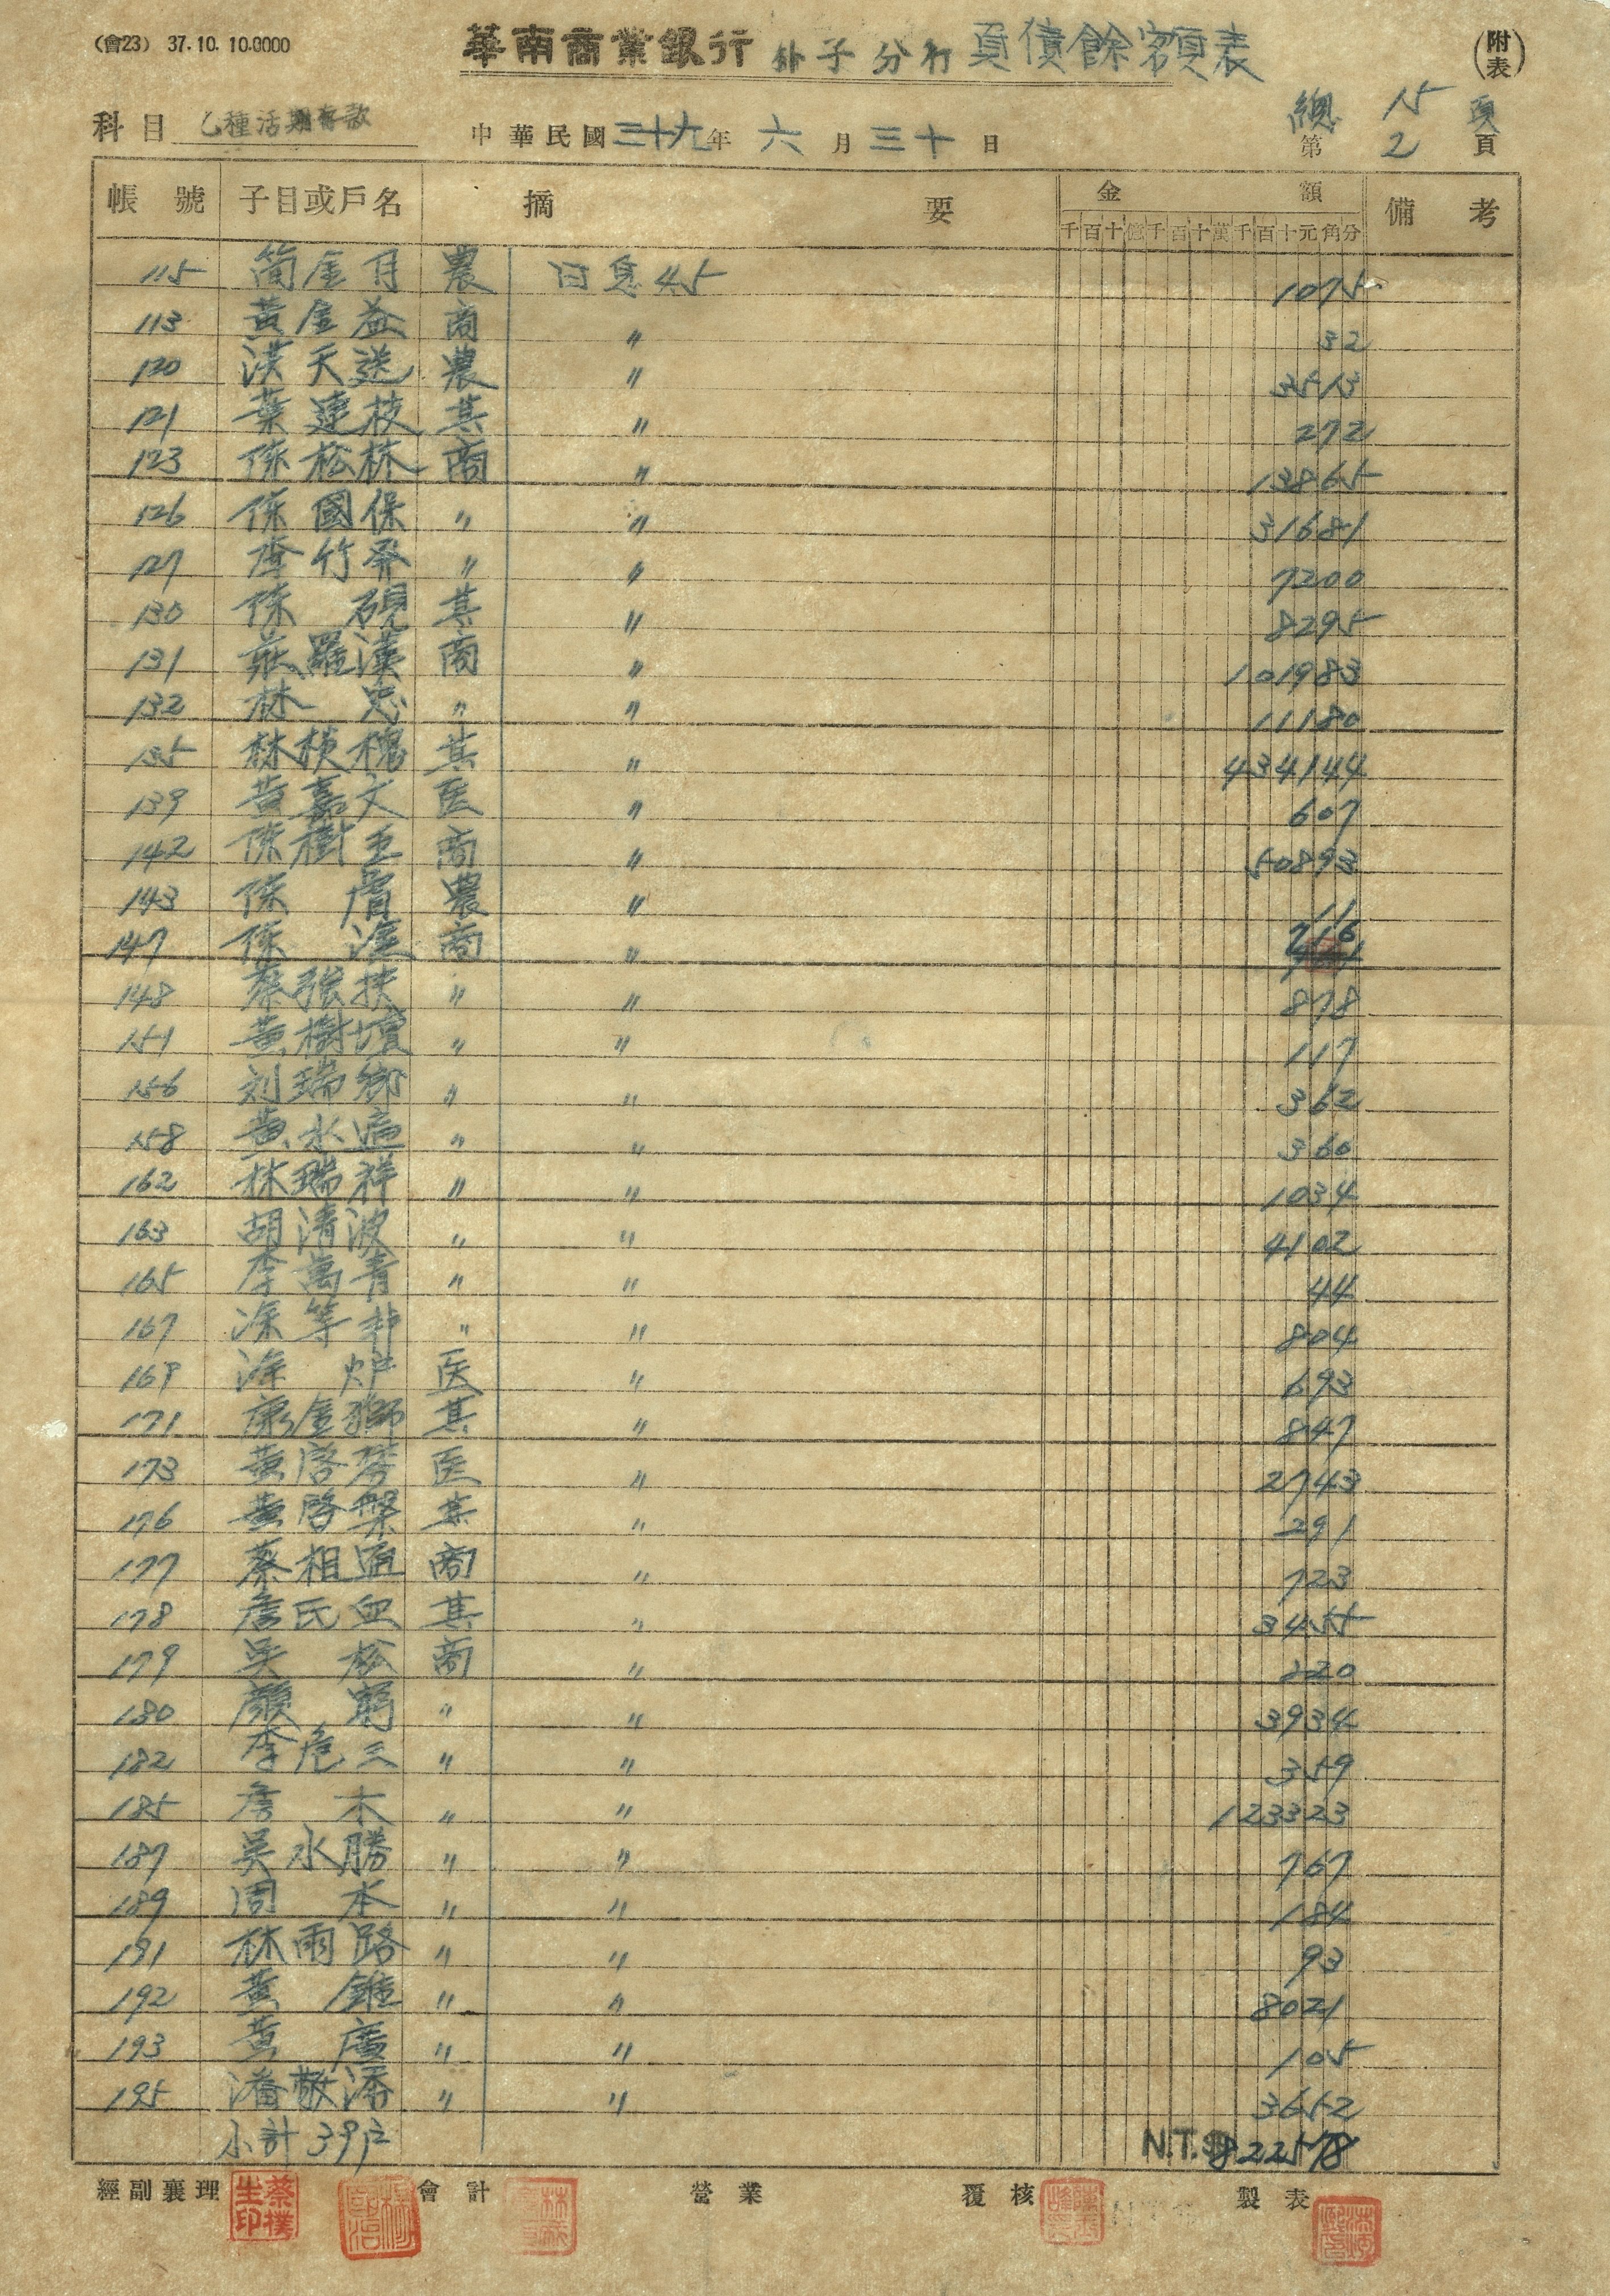 (會23) 37.10.10.0000
華南商業銀行 朴子分行 負債餘額表 (附表)
科目 乙種活期存款 中華民國三十九年六月三十日 總15頁 第2頁
帳號 子目或戶名 摘要 金額 備考
千百十億千百十萬千百十元角分
115 簡金月 農 日息4.5 1075
113 黃金益 商 〃 32
120 漢天送 農 〃 3513
121 葉連枝 其 〃 272
123 涂松林 商 〃 13865
126 涂國保 〃 〃 31681
127 李竹 〃 〃 7200
130 涂硯 其 〃 8295
131 莊羅漢 商 〃 101983
132 林忠 〃 〃 11180
135 林槐 其 〃 434144
139 黃嘉文 医 〃 607
142 涂樹 商 〃 50893
143 涂 農 〃 11
147 涂 商 〃 716
148 蔡強扶 〃 〃 878
151 黃樹壇 〃 〃 117
156 刘瑞鄉 〃 〃 362
158 黃水 〃 〃 360
162 林瑞祥 〃 〃 1034
163 胡清波 〃 〃 4102
165 李萬青 〃 〃 44
167 涂等 〃 〃 804
169 涂炉 医 〃 693
171 康金獅 其 〃 847
173 黃啓 医 〃 2743
176 黃啓槃 其 〃 291
177 蔡相 商 〃 723
178 詹氏血 其 〃 3455
179 吳松 商 〃 220
180 顏窮 〃 〃 3934
182 李危三 〃 〃 359
185 詹木 〃 〃 123323
187 吳永勝 〃 〃 767
189 周本 〃 〃 184
191 林雨路 〃 〃 93
192 黃錐 〃 〃 8021
193 黃廣 〃 〃 105
195 潘敬添 〃 〃 3652
小計39戶 N.T.$822578
經副襄理 蔡樸生印 會計 營業 覆核 製表